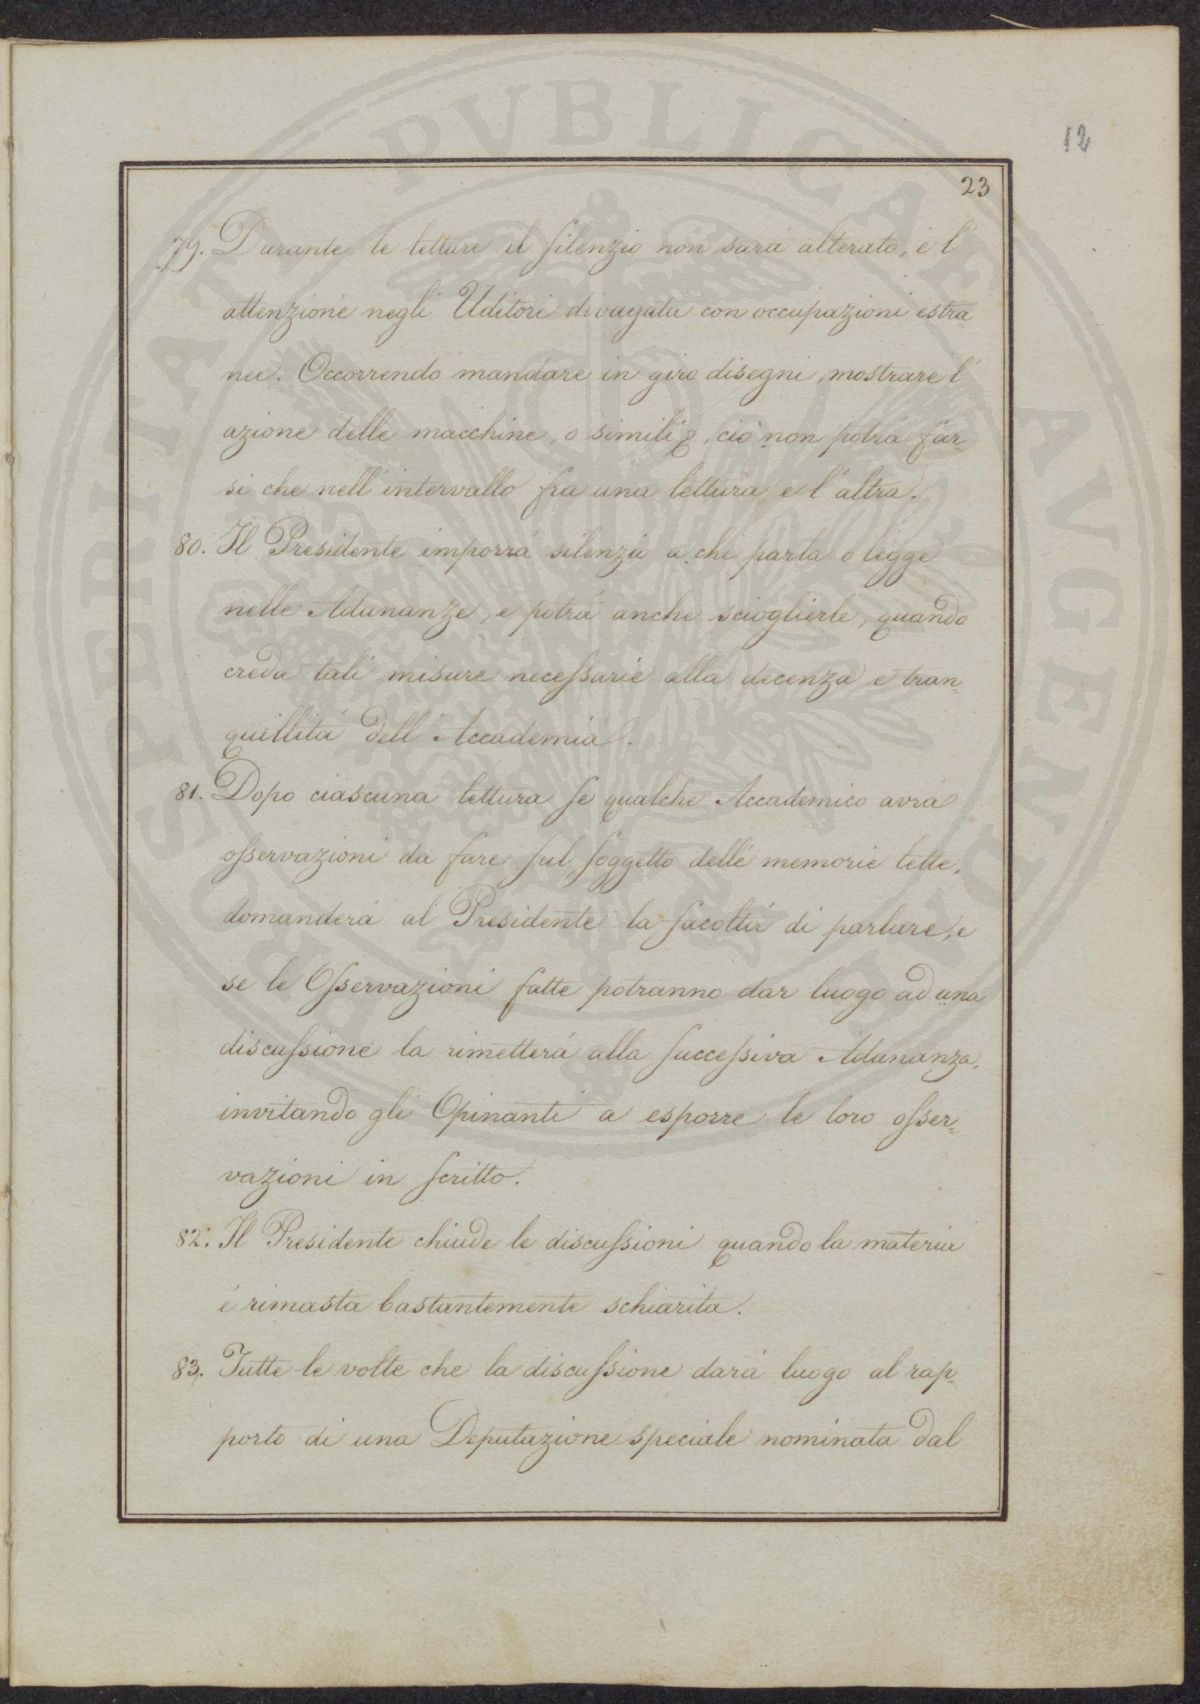 12
23
79. Durante le letture il silenzio non sará alterato, e l'
attenzione negli Uditori divagata con occupazioni estra=
nee. Occorrendo mandare in giro disegni, mostrare l'
azione delle macchine, o simili, ció non potrá far=
si che nell'intervallo fra una lettura e l'altra.
80. Il Presidente imporrá silenzio a chi parla o legge
nelle Adunanze, e potrá anche scioglierle, quando
creda tali misure necessarie alla decenza e tran=
quillitá dell'Accademia.
81. Dopo ciascuna lettura se qualche Accademico avrá
osservazioni da fare sul soggetto delle memorie lette,
domanderá al Presidente la facoltá di parlare, e
se le Osservazioni fatte potranno dar luogo ad una
discussione la rimetterá alla successiva Adunanza,
invitando gli Opinanti a esporre le loro osser=
vazioni in scritto.
82. Il Presidente chiude le discussioni quando la materia
é rimasta bastantemente schiarita.
83. Tutte le volte che la discussione dará luogo al rap=
porto di una Deputazione speciale nominata dal
PVBLICAE AVGENDAE PROSPERITATI